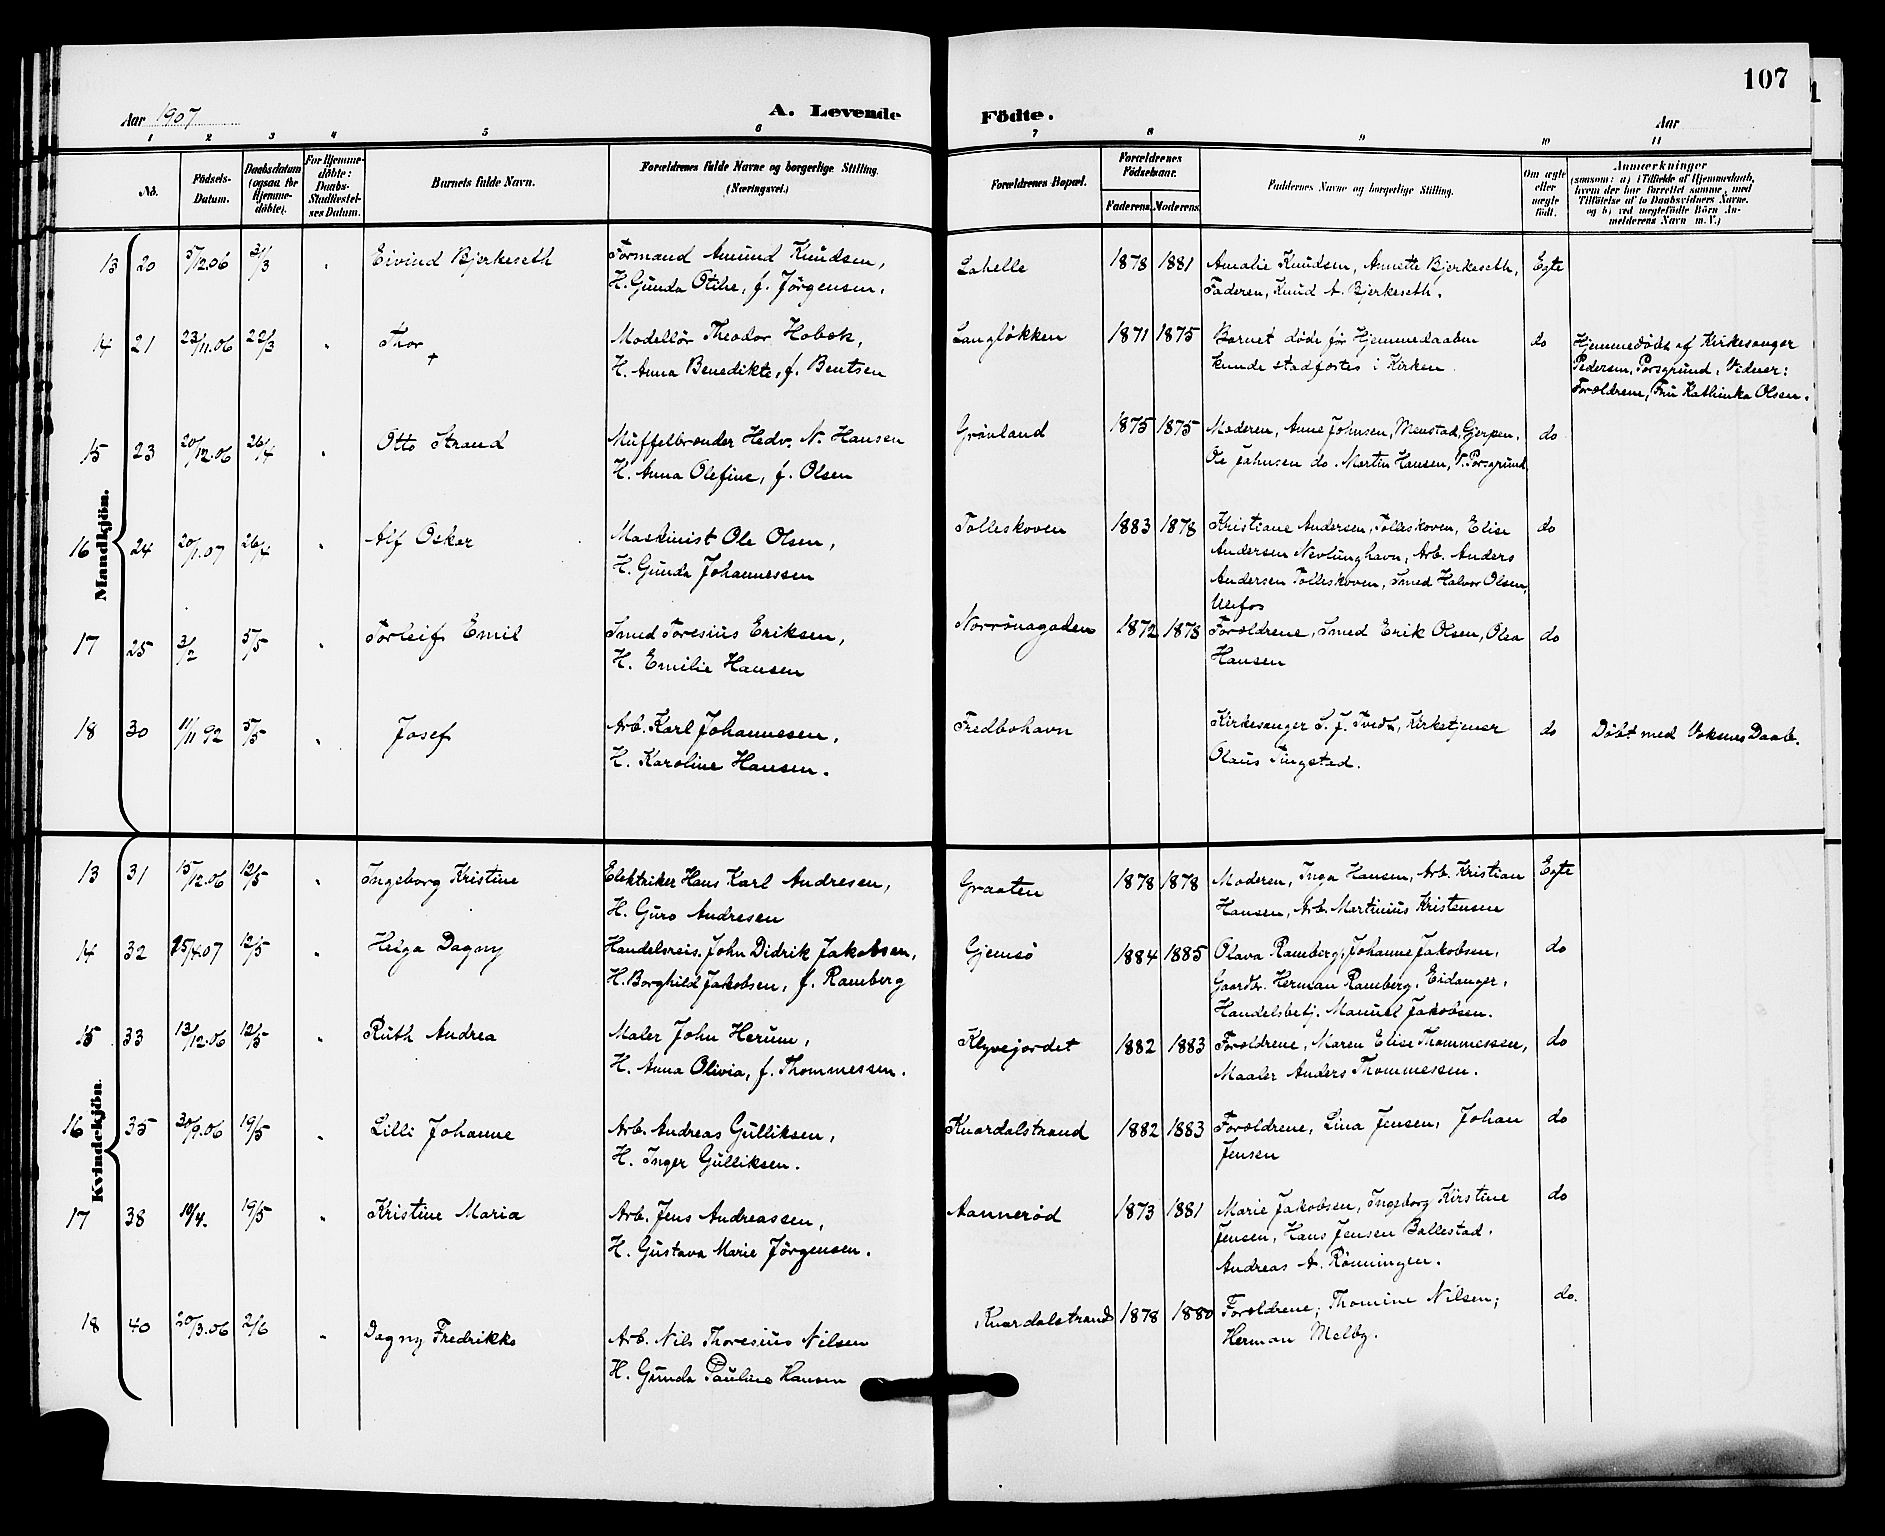 107
Aar 1907
A. Levende Födte.
Aar
1 2 3 4 5 6 7 8 9 10 11
No.
Födsels-Datum.
Daabsdatum (ogsaa for Hjemmedöbte).
For Hjemmedöbte: Daabs-Stadfæstelses Datum.
Barnets fulde Navn.
Forældrenes fulde Navne og borgerlige Stilling. (Næringsvei.)
Forældrenes Bopæl.
Forældrenes Födselsaar.
Faderens. Moderens.
Faddernes Navne og borgerlige Stilling.
Om ægte eller uægte födt.
Anmærkninger
(saasom: a) i Tilfælde af Hjemmedaab, hvem der har forrettet samme, med Tilföielse af to Daabsvidners Navne. og b) ved uægtefödte Börn Anmelderens Navn m. V.)
Mandkjön.
13 20 5/12.06 31/3 " Eivind Bjerkeseth Formand Amund Knudsen, Lahelle 1878 1881 Amalie Knudsen, Annette Bjerkeseth, Egte
H. Gunda Otihe, f. Jørgensen. Faderen, Knud A. Bjerkeseth.
14 21 23/11.06 22/3 " Thor + Modellør Theodor Hobek, Langløkken 1871 1875 Barnet døde før Hjemmedaaben do Hjemmedøbt af Kirkesanger
H. Anna Benedikte, f. Bentsen kunde stadfæstes i Kirken. Pedersen, Porsgrund. Vidner:
Forældrene, Fru Kathinka Olsen.
15 23 20/12.06 26/4 " Otto Strand Muffelbrænder Hedv. N. Hansen Grønland 1875 1875 Moderen, Anne Johnsen, Menstad, Gjerpen, do
H. Anna Olefine, f. Olsen Ole Johnsen do. Martin Hansen, V. Porsgrund
16 24 20/1.07 26/4 " Alf Oskar Maskinist Ole Olsen, Tolleskoven 1883 1878 Kristiane Andersen, Tolleskoven, Elise do
H. Gunda Johannessen Andersen Nevlunghavn, Arb. Anders
Andersen Tolleskoven, Smed Halvor Olsen,
Ulefos
17 25 3/2 5/5 " Torleif Emil Smed Toresius Eriksen, Norrønagaden 1872 1878 Forældrene, Smed Erik Olsen, Olea do
H. Emilie Hansen Hansen
18 30 11/11 92 5/5 " Josef Arb. Karl Johannesen, Fredbohavn Kirkesanger S. J. Tvedt, Kirketjener do Døbt med Voksnes Daab.
H. Karoline Hansen. Olaus Tingstad.
Kvindekjön.
13 31 15/12.06 12/5 " Ingeborg Kristine Elektriker Hans Karl Andresen, Graaten 1878 1878 Moderen, Inga Hansen, Arb. Kristian Egte
H. Guro Andresen Hansen, Arb. Martinius Kristensen
14 32 25/4.07 12/5 " Helga Dagny Handelsreis. John Didrik Jakobsen, Gjemsø 1884 1885 Olava Ramberg, Johanne Jakobsen, do
H. Borghild Jakobsen, f. Ramberg Gaardbr. Herman Ramberg, Eidanger,
Handelsbetj. Manuel Jakobsen.
15 33 13/12.06 12/5 " Ruth Andrea Maler John Herum, Klyvejordet 1882 1883 Forældrene, Maren Elise Thommessen, do
H. Anna Olivia, f. Thommessen. Maaler Anders Thommessen.
16 35 30/9.06 19/5 " Lilli Johanne Arb. Andreas Gulliksen, Knardalstrand 1882 1883 Forældrene, Lina Jensen, Johan do
H. Inger Gulliksen. Jensen
17 38 10/4. 19/5 " Kristine Maria Arb. Jens Andreassen, Aannerød 1873 1881 Marie Jakobsen, Ingeborg Kirstine do
H. Gustava Marie Jørgensen. Jensen, Hans Jensen Ballestad.
Andreas A. Rønningen.
18 40 20/3.06 2/6 " Dagny Fredrikke Arb. Nils Thoresius Nilsen Knardalstrand 1878 1880 Forældrene, Thomine Nilsen, do.
H. Gunda Pauline Hansen Herman Melby.